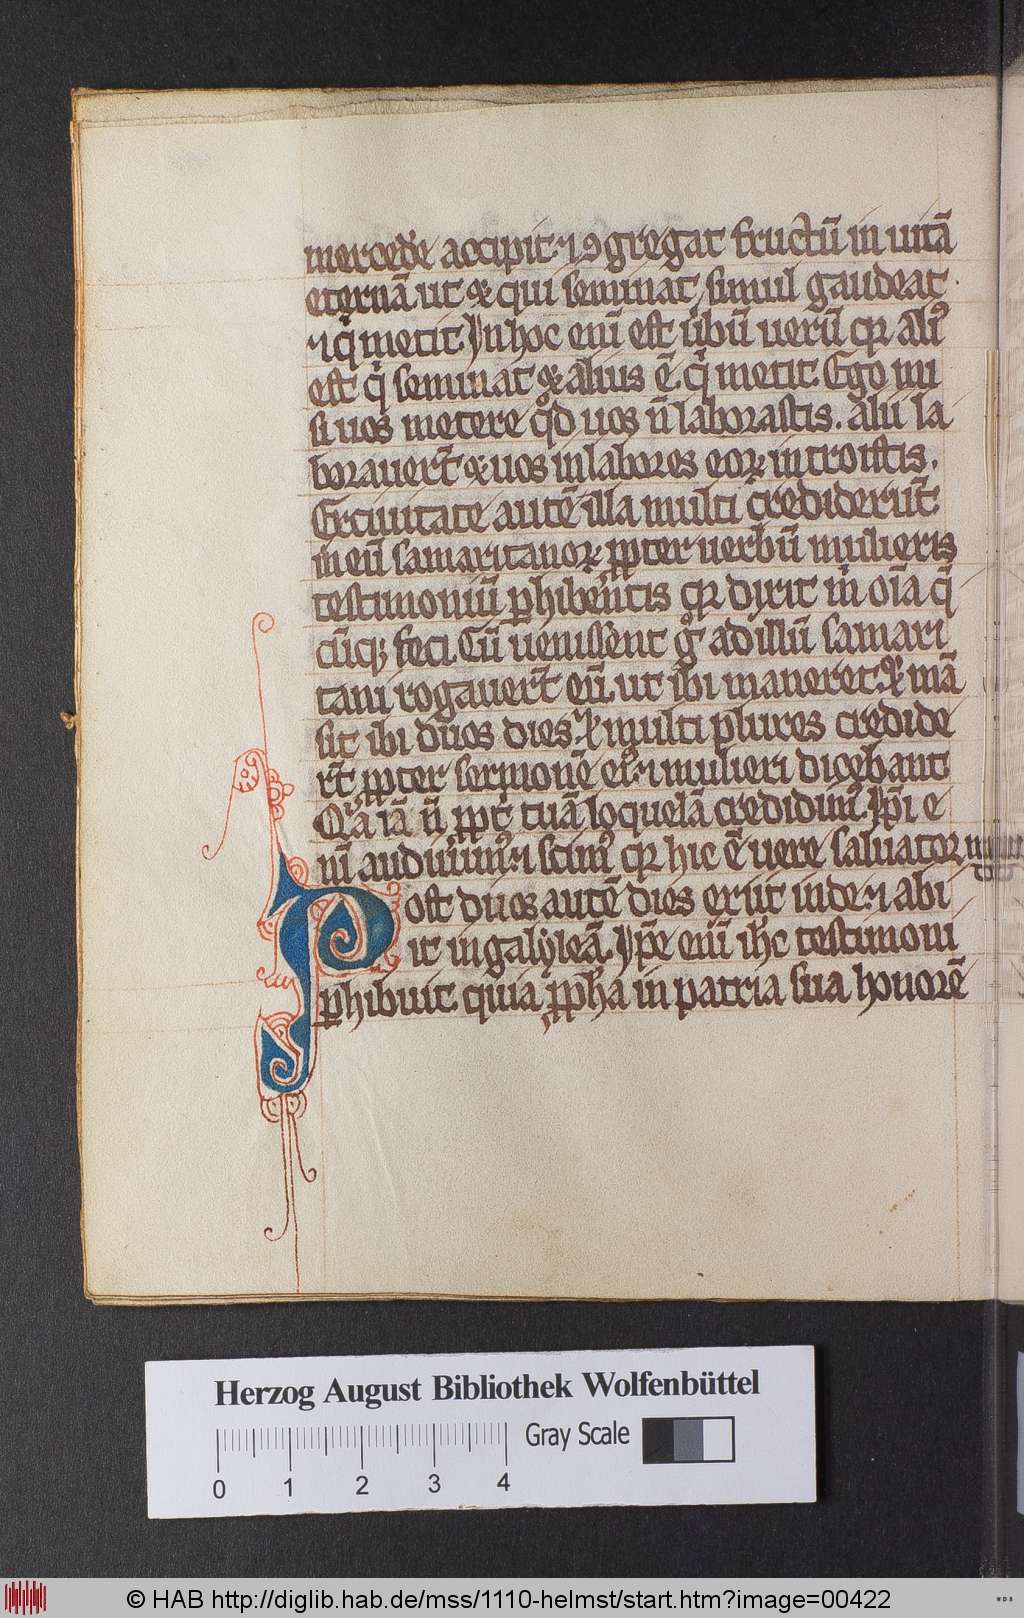 mercedē accipit ⁊ ꝯgregat fructū in uitā
eternā ut & qui seminat simul gaudeat
⁊ qͥ metit. In hoc enī est ūbū uerū qꝛ aliꝰ
est qͥ seminat & alius ē qͥ metit. Ego mi
si uos metere qͦd uos ñ laborastis. alii la
borauer̄t & uos in labores eoꝝ introistis.
Ex ciuitate autē illa multi crediderūt
in eū samaritanoꝝ ꝓpter uerbū mulieris
testimoniū ꝑhibentis qꝛ dixit mͥ oīa q̄
cūqꝫ feci. Cū uenissent gͦ ad illū samari
tani rogauer̄t eū ut ibi maneret. & mā
sit ibi duos dies. & multi plures credide
rt̄ ꝓpter sermonē eiꝰ ⁊ mulieri dicebant
Qꝛ iā ñ ꝓpt̄ tuā loquelā credidimꝰ. Ip̄i e
nī audiuimꝰ ⁊ scimꝰ qꝛ hic ē uere saluator mūdi
Post duos autē dies exiit inde ⁊ abi
it in galyleā. Ip̄e enī ih̄c testimoni
ꝑhibuit quia ꝓph̄a in patria sua honorē
Herzog August Bibliothek Wolfenbüttel
Gray Scale
0 1 2 3 4
© HAB http://diglib.hab.de/mss/1110-helmst/start.htm?image=00422